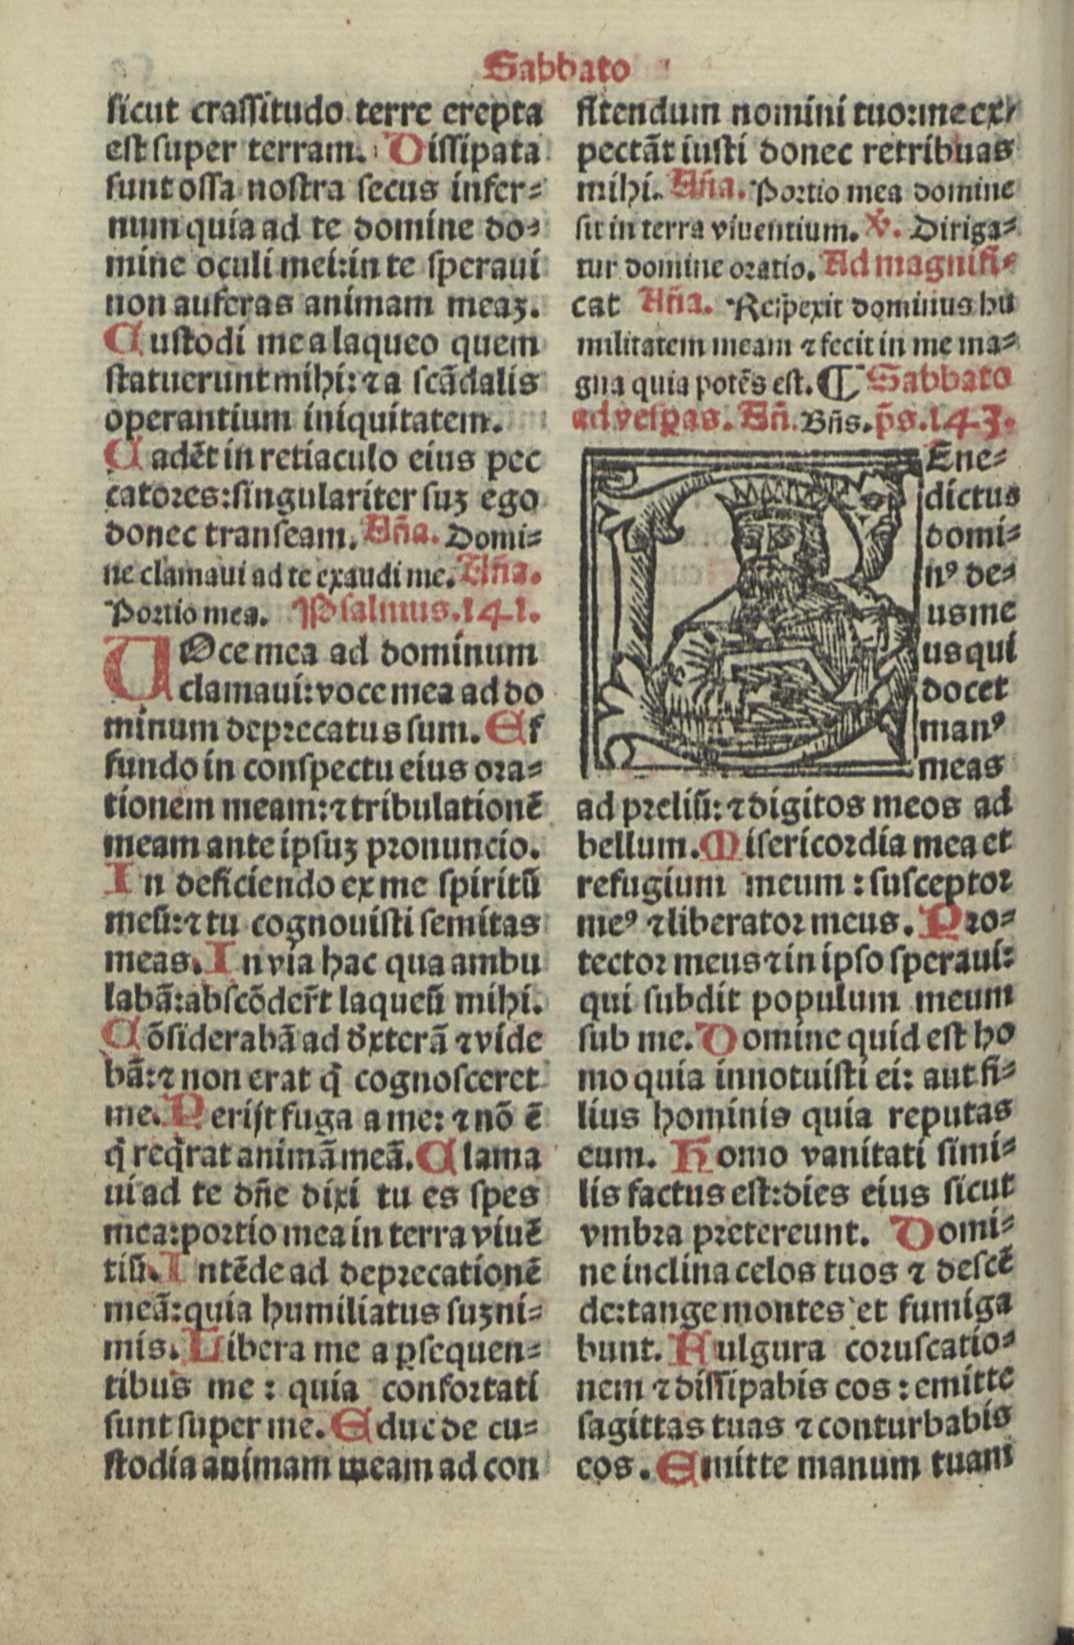 Sabbato
sicut crassitudo terre erepta
est super terram. Dissipata
sunt ossa nostra secus infer=
num quia ad te domine do=
mine oculi mei: in te speraui
non auferas animam meaꝫ.
Custodi me a laqueo quem
statuerunt mihi: ⁊ a scādalis
operantium iniquitatem.
Cadēt in retiaculo eius pec
catores: singulariter suꝫ ego
donec transeam. Aña. Domi=
ne clamaui ad te exaudi me. Aña.
Portio mea. Psalmus.141.
UOce mea ad dominum
clamaui: voce mea ad do
minum deprecatus sum. Ef
fundo in conspectu eius ora=
tionem meam: ⁊ tribulationē
meam ante ipsuꝫ pronuncio.
In deficiendo ex me spiritū
meū: ⁊ tu cognouisti semitas
meas. In via hac qua ambu
labā: abscōder̄t laqueū mihi.
Cōsiderabā ad dꝛ̄xterā ⁊ vide
bā: ⁊ non erat q̄ cognosceret
me. Perijt fuga a me: ⁊ nō ē
q̄ req̄rat animā meā. Clama
ui ad te dñe dixi tu es spes
mea: portio mea in terra viuē
tiū. Intēde ad deprecationē
meā: quia humiliatus suꝫ ni=
mis. Libera me a ꝑsequen=
tibus me: quia confortati
sunt super me. Educ de cu=
stodia animam meam ad con
fitendum nomini tuo: me ex=
pectāt iusti donec retribuas
mihi. Aña. Portio mea domine
sit in terra viuentium. V̄. Diriga=
tur domine oratio. Ad magnifi=
cat Aña. Respexit dominus hu
militatem meam ⁊ fecit in me ma=
gna quia potēs est. ¶ Sabbato
ad vesꝑas. Añ. Bñs. p̄s.143.
Ene=
dictus
domi=
nꝰ de=
us me
us qui
docet
manꝰ
meas
ad preliū: ⁊ digitos meos ad
bellum. Misericordia mea et
refugium meum: susceptor
meꝰ ⁊ liberator meus. Pro=
tector meus ⁊ in ipso speraui:
qui subdit populum meum
sub me. Domine quid est ho
mo quia innotuisti ei: aut fi=
lius hominis quia reputas
eum. Homo vanitati simi=
lis factus est: dies eius sicut
vmbra pretereunt. Domi=
ne inclina celos tuos ⁊ descē
de: tange montes et fumiga
bunt. Fulgura coruscatio=
nem ⁊ dissipabis eos: emitte
sagittas tuas ⁊ conturbabis
eos. Emitte manum tuam